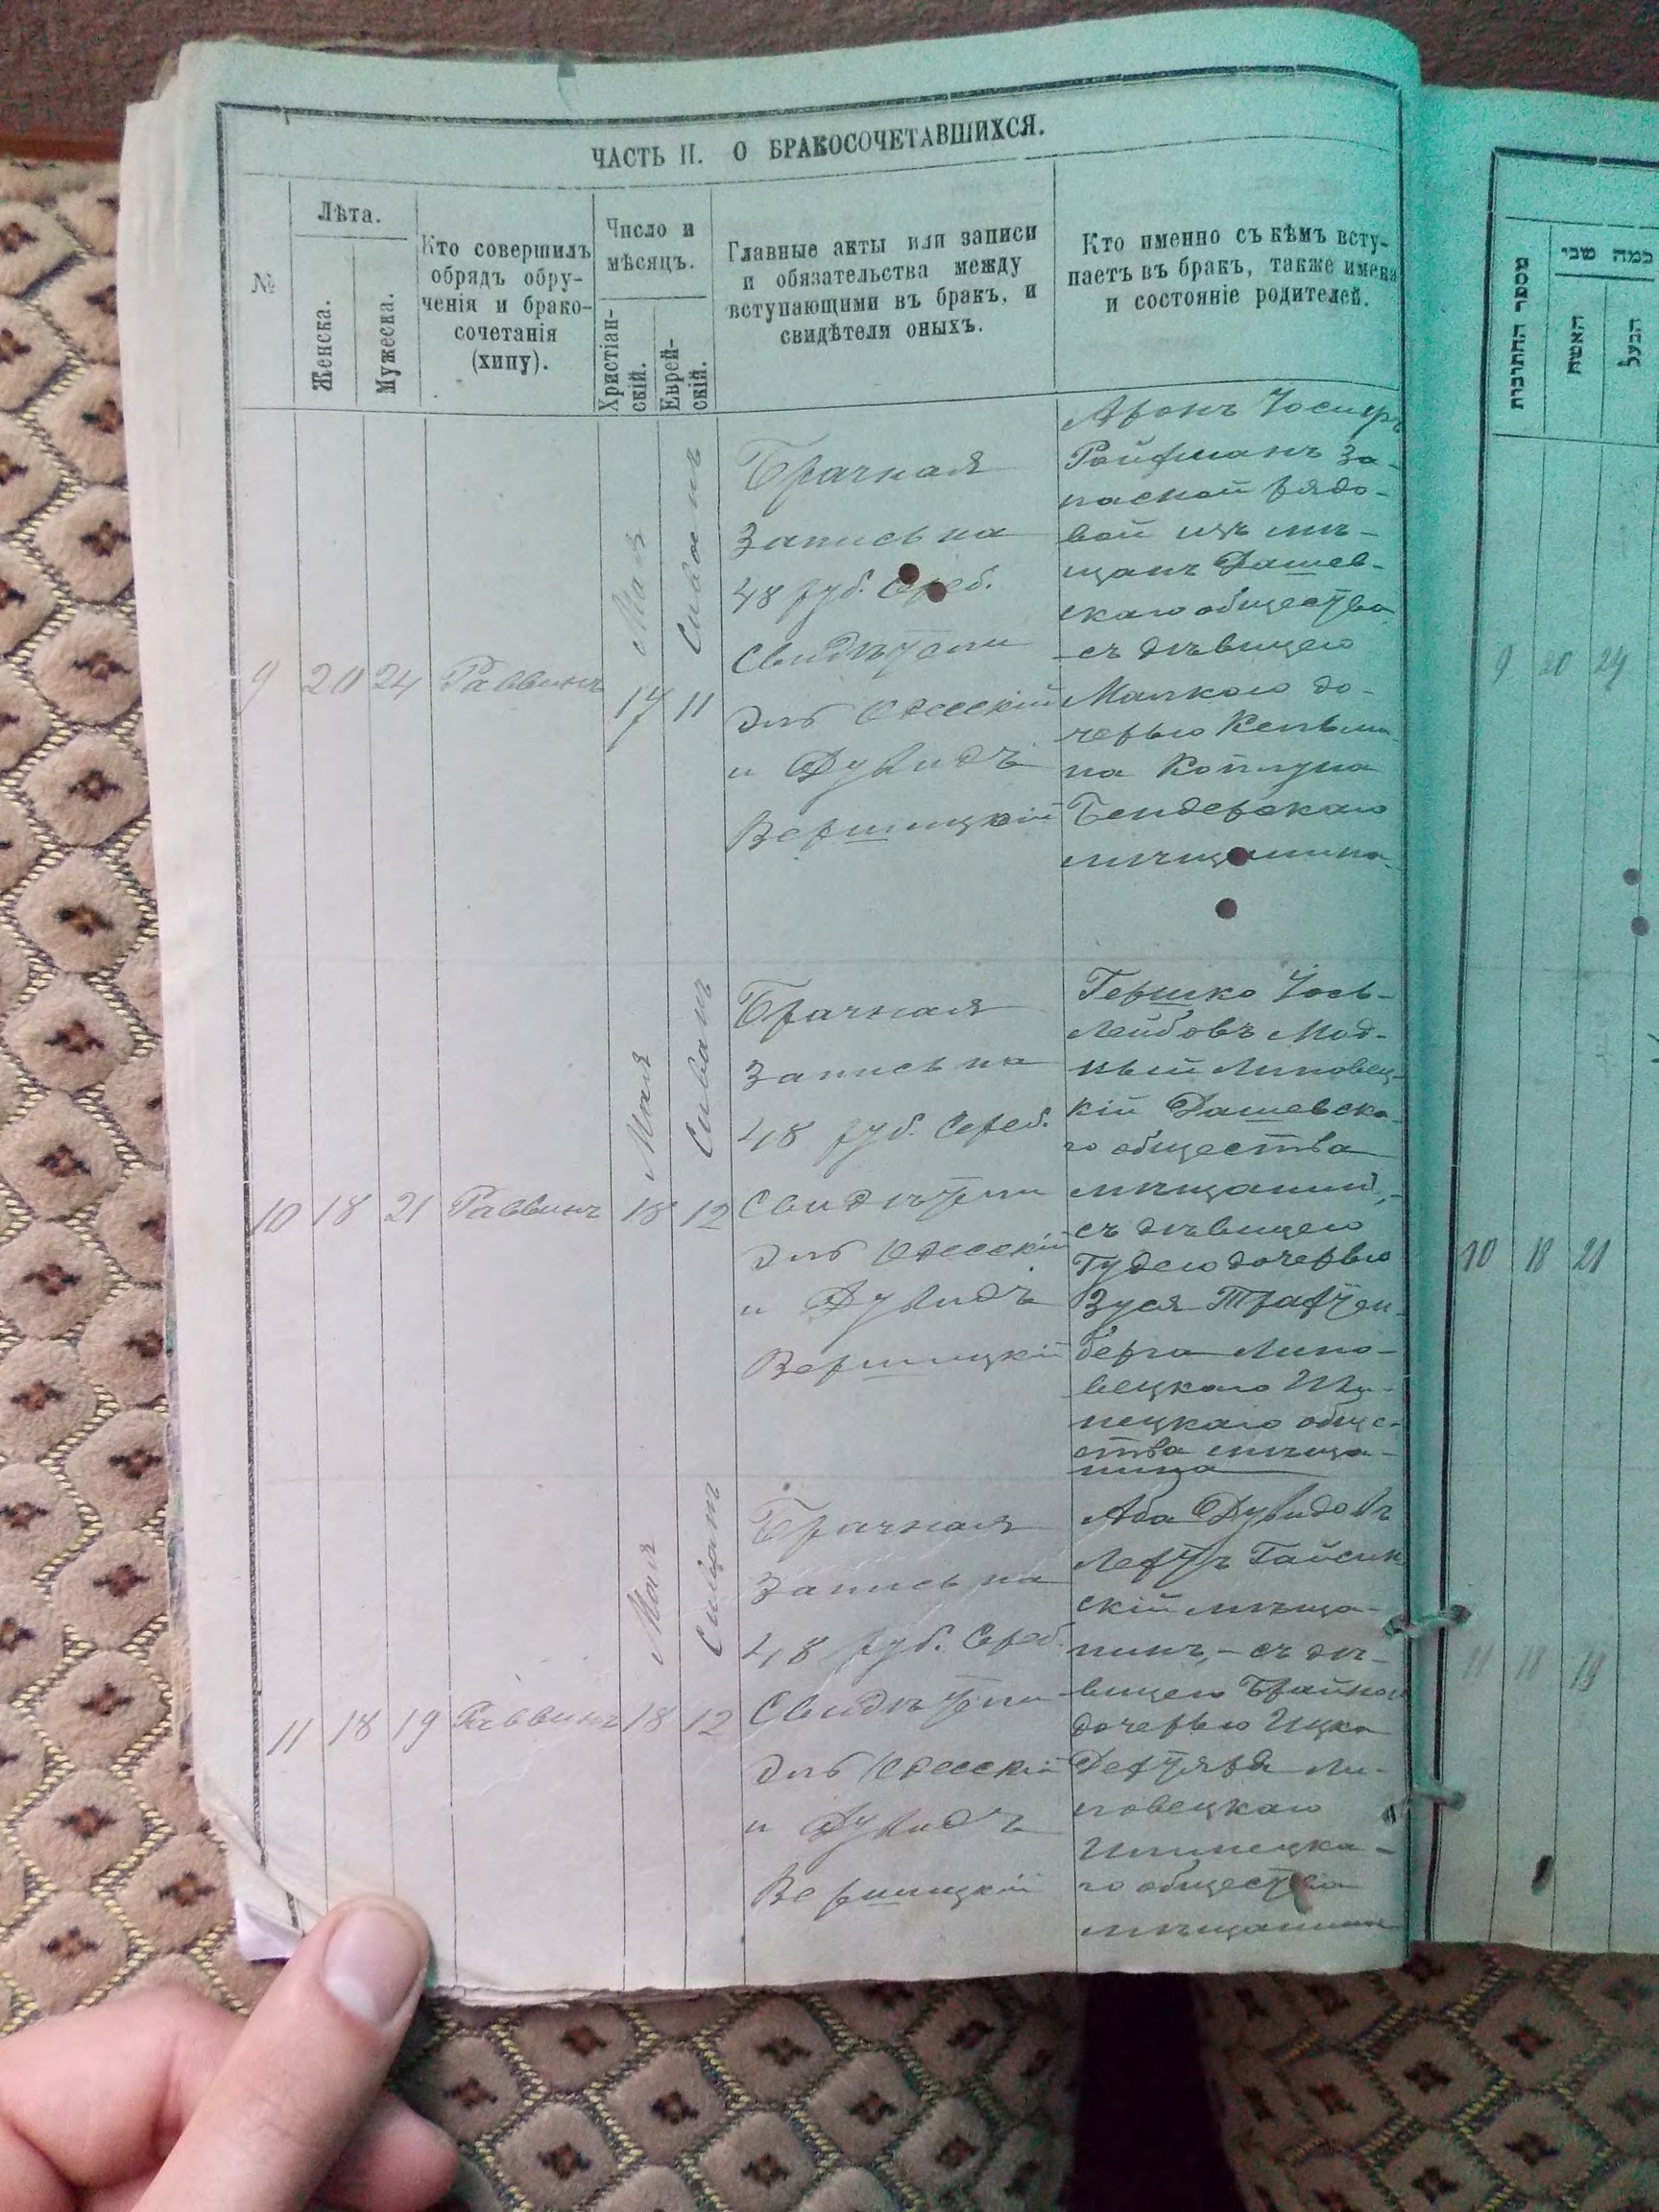 ЧАСТЬ II. О БРАКОСОЧЕТАВШИХСЯ.
№
Лѣта.
Женска.
Мужеска.
Кто совершилъ
обрядъ обру-
ченія и брако-
сочетанія
(хипу).
Число и
мѣсяцъ.
Христіан-
скій.
Еврей-
скій.
Главные акты или записи
и обязательства между
вступающими въ бракъ, и
свидѣтели оныхъ.
Кто именно съ кѣмъ всту-
паетъ въ бракъ, также имена
и состояніе родителей.
9
20
24
Раввинъ
Мая
17
Сивонъ
11
Брачная
Запись на
48 руб. Сереб.
Свидѣтели
Одесскій
и Дувидъ
Вершицкій
Аронъ Іосифъ
Ройфманъ за-
пасной рядо-
вой изъ мѣ-
щанъ Дашев-
скаго общества
съ дѣвицею
Малкою до-
черью Кельма-
на Каплуна
Бендерскаго
мѣщанина
10
18
21
Раввинъ
Мая
18
Сиванъ
12
Брачная
Запись на
48 руб. Сереб.
Свидѣтели
Одесскій
и Дувидъ
Вершицкій
Гершко Іось-
Лейбовъ Мод-
ный Липовец-
кій Дашевска-
го общества
мѣщанин,-
съ дѣвицею
Гудею дочерью
Зуся Трахтен-
берга Липо-
вецкаго Иль-
нецкаго обще-
ства мѣща-
нина
11
18
19
Раввинъ
Мая
18
Сиванъ
12
Брачная
Запись на
48 руб. Сереб.
Свидѣтели
Одесскій
и Дувидъ
Вершицкій
Аба Дувидовъ
Гайсин
скій мѣща-
нинъ,- съ дѣ-
вицею Брайною
дочерью Ицка
Дехтяря Ли-
повецкаго
Илинецка-
го общества
мѣщанина
מספר החתונות
כמה שני
האשה
הבעל
9 20 24
10 18 21
11 18 19